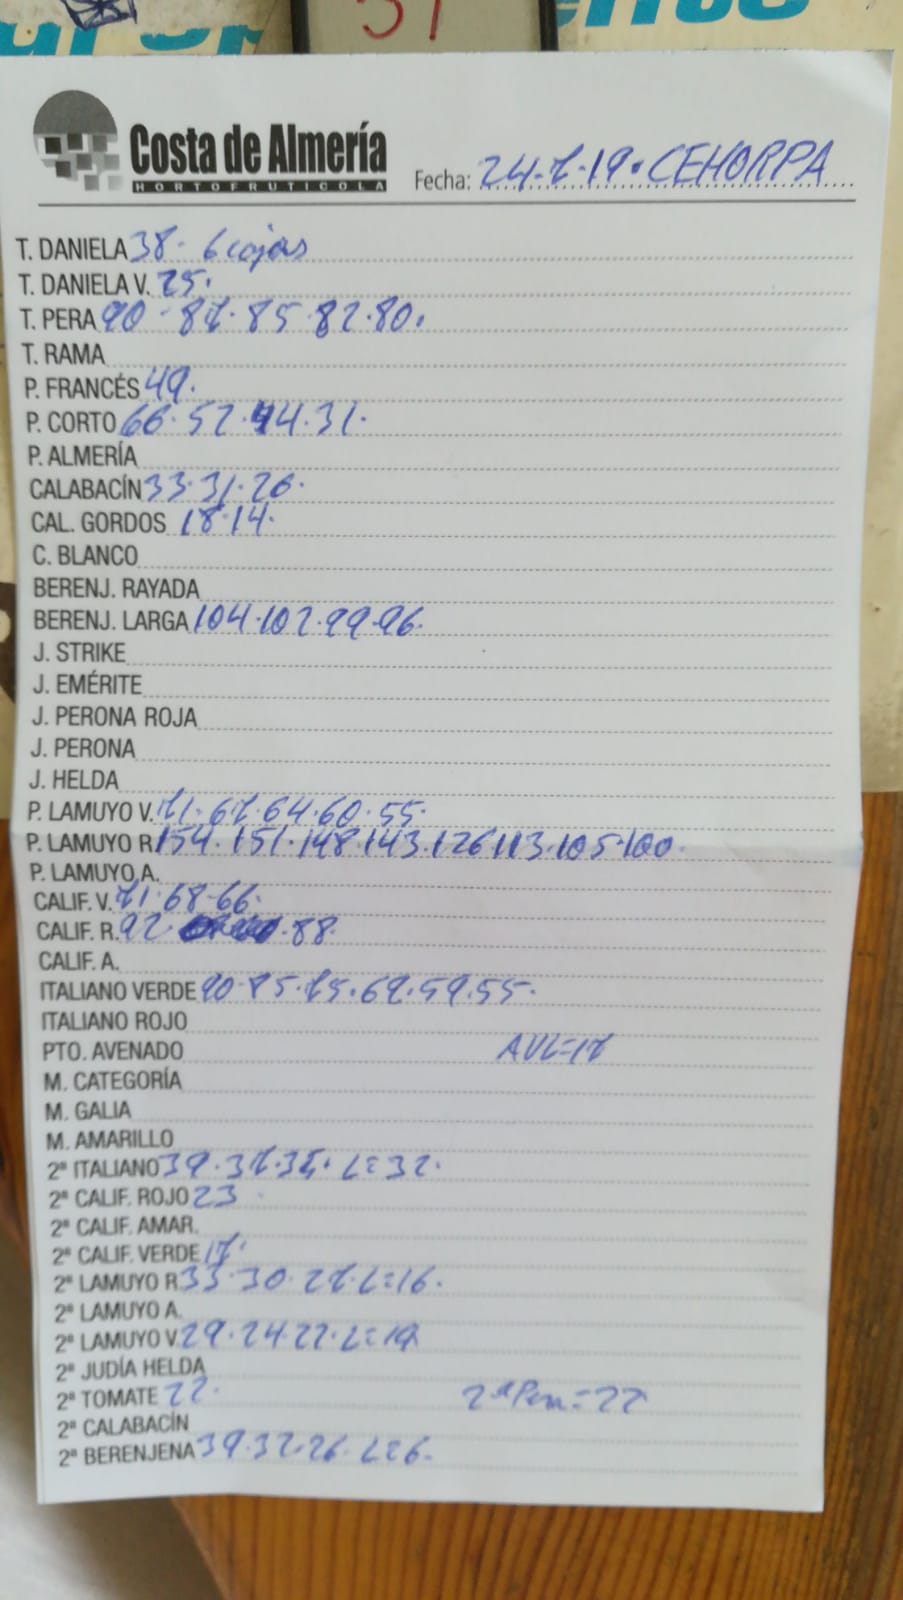 31
Costa de Almería
HORTOFRUTICOLA
Fecha: 24-7-19 · CEHORPA
T. DANIELA 38 - 6 cajas
T. DANIELA V. 25.
T. PERA 90 - 87 · 85 · 82 · 80.
T. RAMA
P. FRANCÉS 49.
P. CORTO 66 · 52 · 44 · 31.
P. ALMERÍA
CALABACÍN 33 · 31 · 26.
CAL. GORDOS 18 · 14.
C. BLANCO
BERENJ. RAYADA
BERENJ. LARGA 104 · 102 · 99 · 96.
J. STRIKE
J. EMÉRITE
J. PERONA ROJA
J. PERONA
J. HELDA
P. LAMUYO V. 71 · 67 · 64 · 60 · 55.
P. LAMUYO R. 154 · 151 · 148 · 143 · 126 · 113 · 105 · 100.
P. LAMUYO A.
CALIF. V. 71 · 68 · 66.
CALIF. R. 92 · 88.
CALIF. A.
ITALIANO VERDE 90 · 85 · 75 · 69 · 59 · 55.
ITALIANO ROJO
PTO. AVENADO AVL=17
M. CATEGORÍA
M. GALIA
M. AMARILLO
2ª ITALIANO 39 · 37 · 35 · L=32.
2ª CALIF. ROJO 23
2ª CALIF. AMAR.
2ª CALIF. VERDE 17.
2ª LAMUYO R. 33 · 30 · 27 · L=16.
2ª LAMUYO A.
2ª LAMUYO V. 29 · 24 · 22 · L=19
2ª JUDÍA HELDA
2ª TOMATE 22. 2ª Pera = 22
2ª CALABACÍN
2ª BERENJENA 39 · 32 · 26 · L=6.